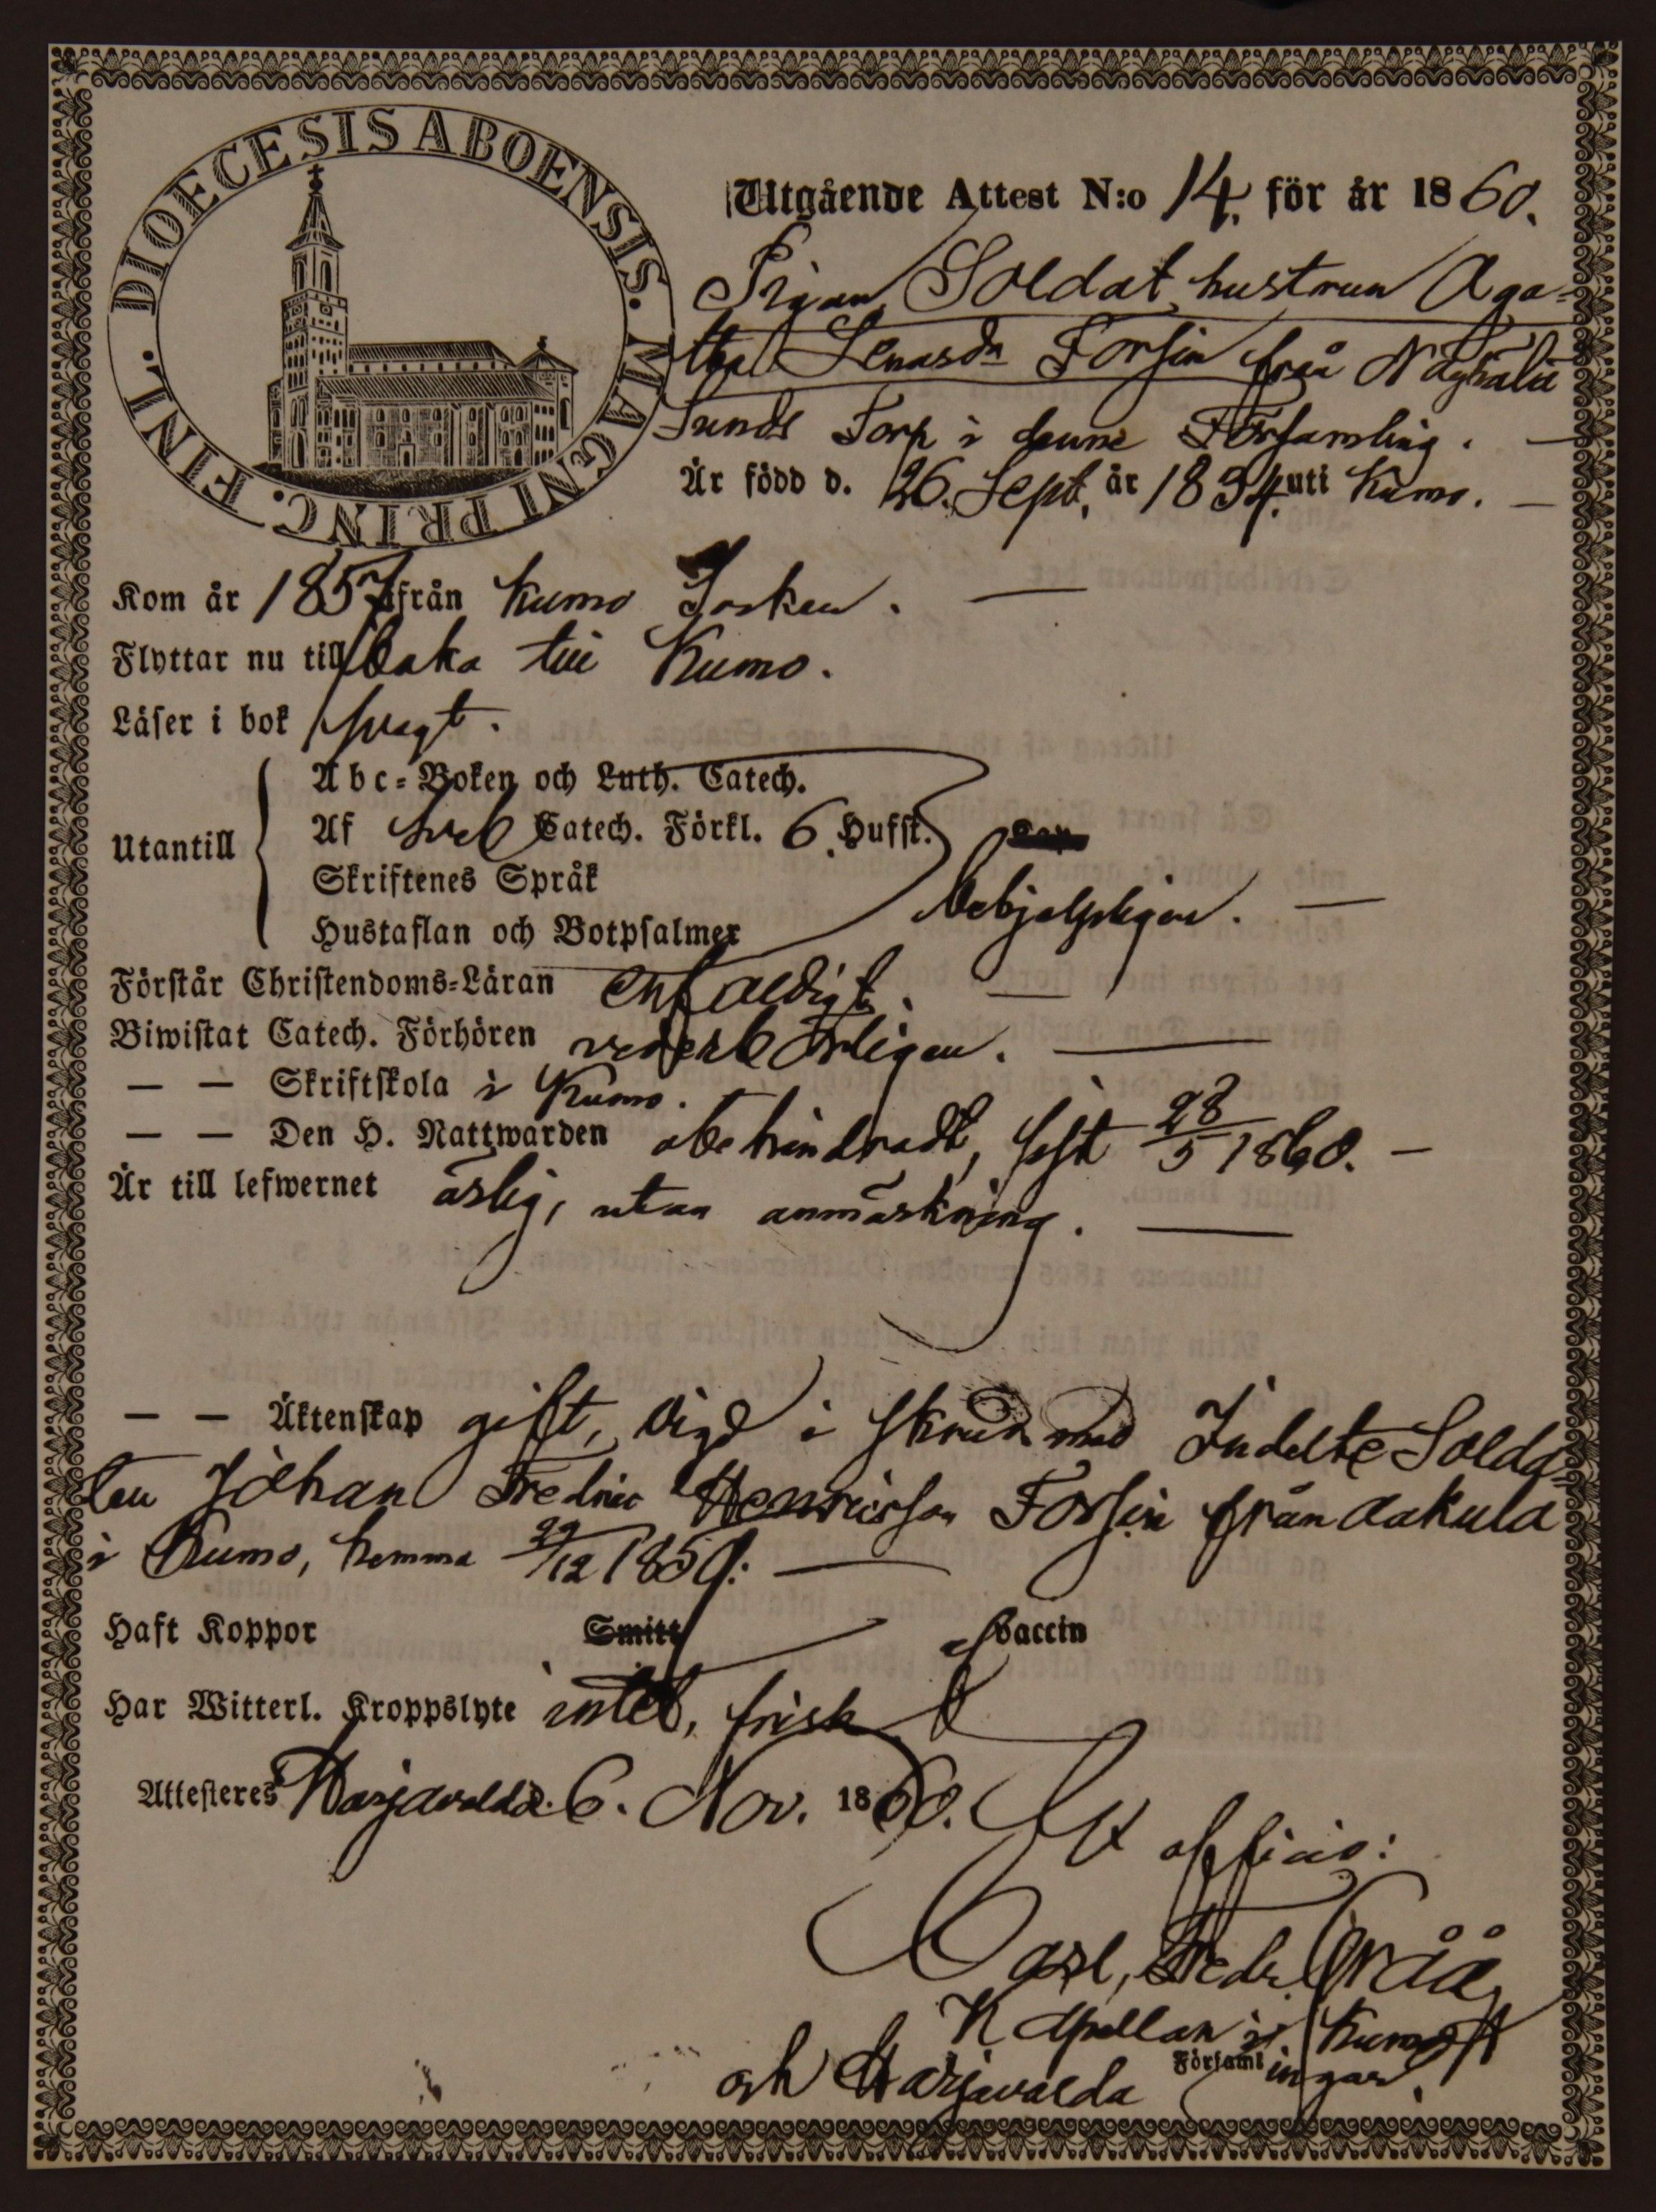 DIOECESIS ABOENSIS. MAGNI PRINC. FINL.
Utgående Attest N:o 14. för år 1860.
Pigan, Soldat hustrun Aga-
tha Lenasdr Forsin från
Sunds Torp i denne Församling.
Är född d. 26. Sept. år 1834. uti Kumo.
Kom år 1857 ifrån Kumo Socken.
Flyttar nu tillbaka till Kumo.
Läser i bok svagt.
Utantill
Abc-Boken och Luth. Catech.
Af Sveb Catech. Förkl. 6. Hufst.
Skriftenes Språk
Hustaflan och Botpsalmer
behjelpligen.
Förstår Christendoms-Läran enfaldigt.
Biwistat Catech. Förhören vederbörligen.
— — Skriftskola i Kumo.
— — Den H. Nattwarden obehindradt, sist 28/5 1860.
Är till lefwernet ärlig, utan anmärkning.
— — Äktenskap gift, vigd i med Indelte Solda-
ten Johan Fredric Henricsson Forsin från Aakula
i Kumo, hemma 29/12 1859.
Haft Koppor Smitt af vaccin
Har Witterl. Kroppslyte intet, frisk
Attesteres Harjavalda d. 6. Nov. 1860. Ex officio:
Carl, Fredr. Gråå,
Kapellan i Kumo
och Harjavalda Församlingar.